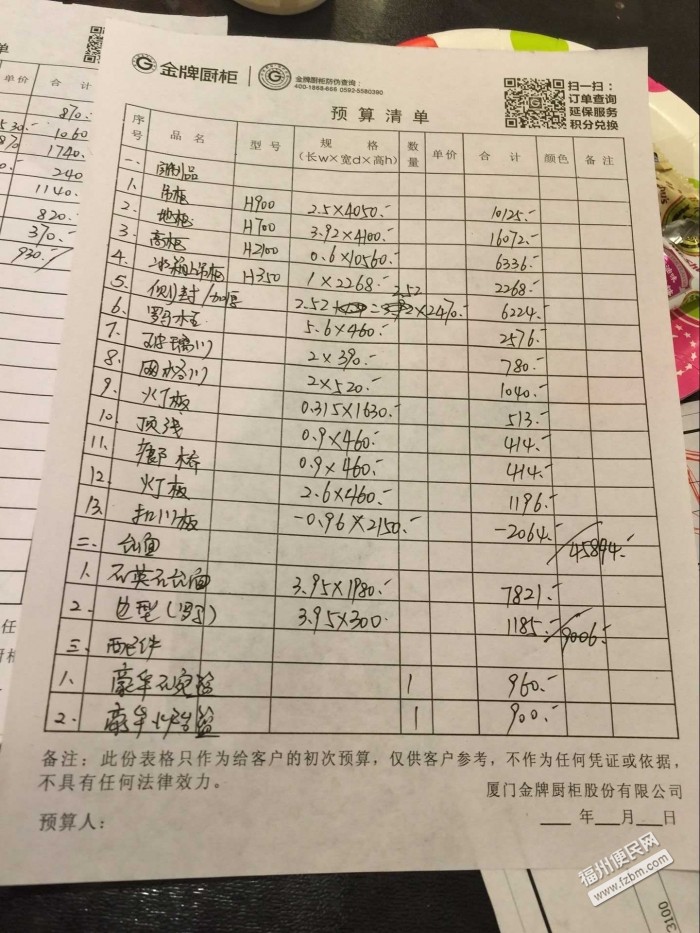 清单
单价 合计
870.-
530.- 1060
870 1740.-
240
1140.-
820.
370.-
930.-
金牌厨柜
金牌厨柜防伪查询：
400-1868-666 0592-5580390
扫一扫：
订单查询
延保服务
积分兑换
预算清单
序号 品名 型号 规格（长w×宽d×高h） 数量 单价 合计 颜色 备注
一、
1. 吊柜 H900 2.5×4050.- 10125.-
2. 地柜 H700 3.92×4100.- 16072.-
3. 高柜 H2100 0.6×10560.- 6336.-
4. 冰箱上吊柜 H350 1×2268.- 2268.-
5. 侧封 2.52 2.52×2470.- 6224.-
6. 罗马柱 5.6×460.- 2576.-
7. 玻璃门 2×390.- 780.-
8. 网格门 2×520.- 1040.-
9. 灯板 0.315×1630.- 513.-
10. 顶线 0.9×460.- 414.-
11. 0.9×460.- 414.-
12. 灯板 2.6×460.- 1196.-
13. 扣门板 -0.96×2150.- -2064.- 45894.-
二. 台面
1. 石英石台面 3.95×1980.- 7821.-
2. 边型(罗丁) 3.95×300. 1185.- 9006.-
三. 配件
1. 豪华 1 960.-
2. 豪华 1 900.-
备注：此份表格只作为给客户的初次预算，仅供客户参考，不作为任何凭证或依据，
不具有任何法律效力。
厦门金牌厨柜股份有限公司
预算人：
年 月 日
福州便民网
www.fzbm.com
3100